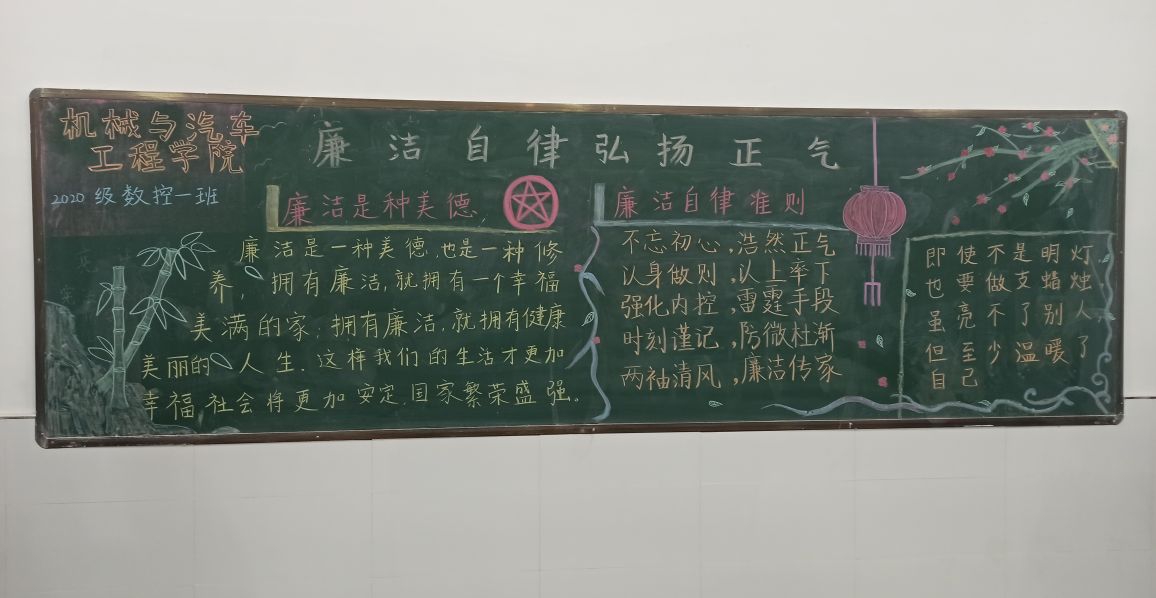 机械与汽车
工程学院
2020级数控一班
廉洁自律弘扬正气
廉洁是种美德
廉洁是一种美德,也是一种修
养,拥有廉洁,就拥有一个幸福
美满的家;拥有廉洁,就拥有健康
美丽的人生.这样我们的生活才更加
幸福,社会将更加安定,国家繁荣盛强。
廉洁自律准则
不忘初心,浩然正气
以身做则,以上率下
强化内控,雷霆手段
时刻谨记,防微杜渐
两袖清风,廉洁传家
即使不是明灯
也要做支蜡烛
虽亮不了别人
但至少温暖了
自己